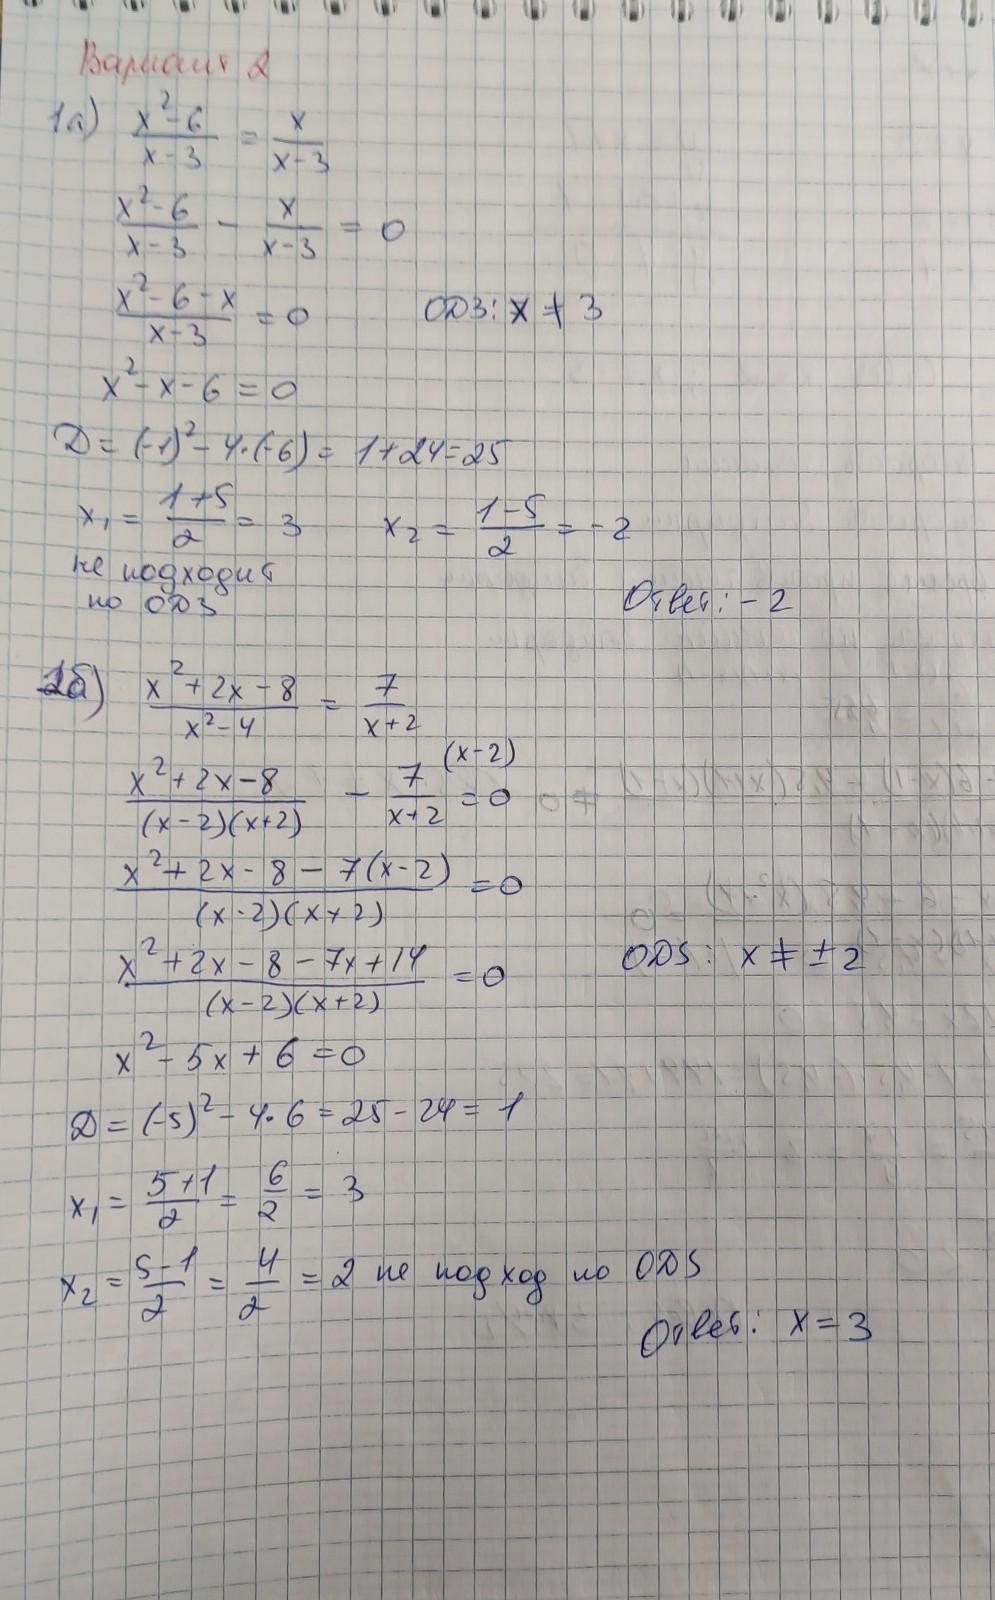 Вариант 2
1а) (x²-6)/(x-3) = x/(x-3)
(x²-6)/(x-3) - x/(x-3) = 0
(x²-6-x)/(x-3) = 0 ОДЗ: x ≠ 3
x²-x-6=0
D = (-1)²-4·(-6) = 1+24=25
x₁ = (1+5)/2 = 3 x₂ = (1-5)/2 = -2
не подходит
по ОДЗ
Ответ: -2
1б) (x²+2x-8)/(x²-4) = 7/(x+2)
(x²+2x-8)/((x-2)(x+2)) - 7/(x+2) (x-2) = 0
(x²+2x-8-7(x-2))/((x-2)(x+2)) = 0
(x²+2x-8-7x+14)/((x-2)(x+2)) = 0 ОДЗ: x ≠ ±2
x²-5x+6=0
D = (-5)²-4·6=25-24=1
x₁ = (5+1)/2 = 6/2 = 3
x₂ = (5-1)/2 = 4/2 = 2 не подход по ОДЗ
Ответ: x=3